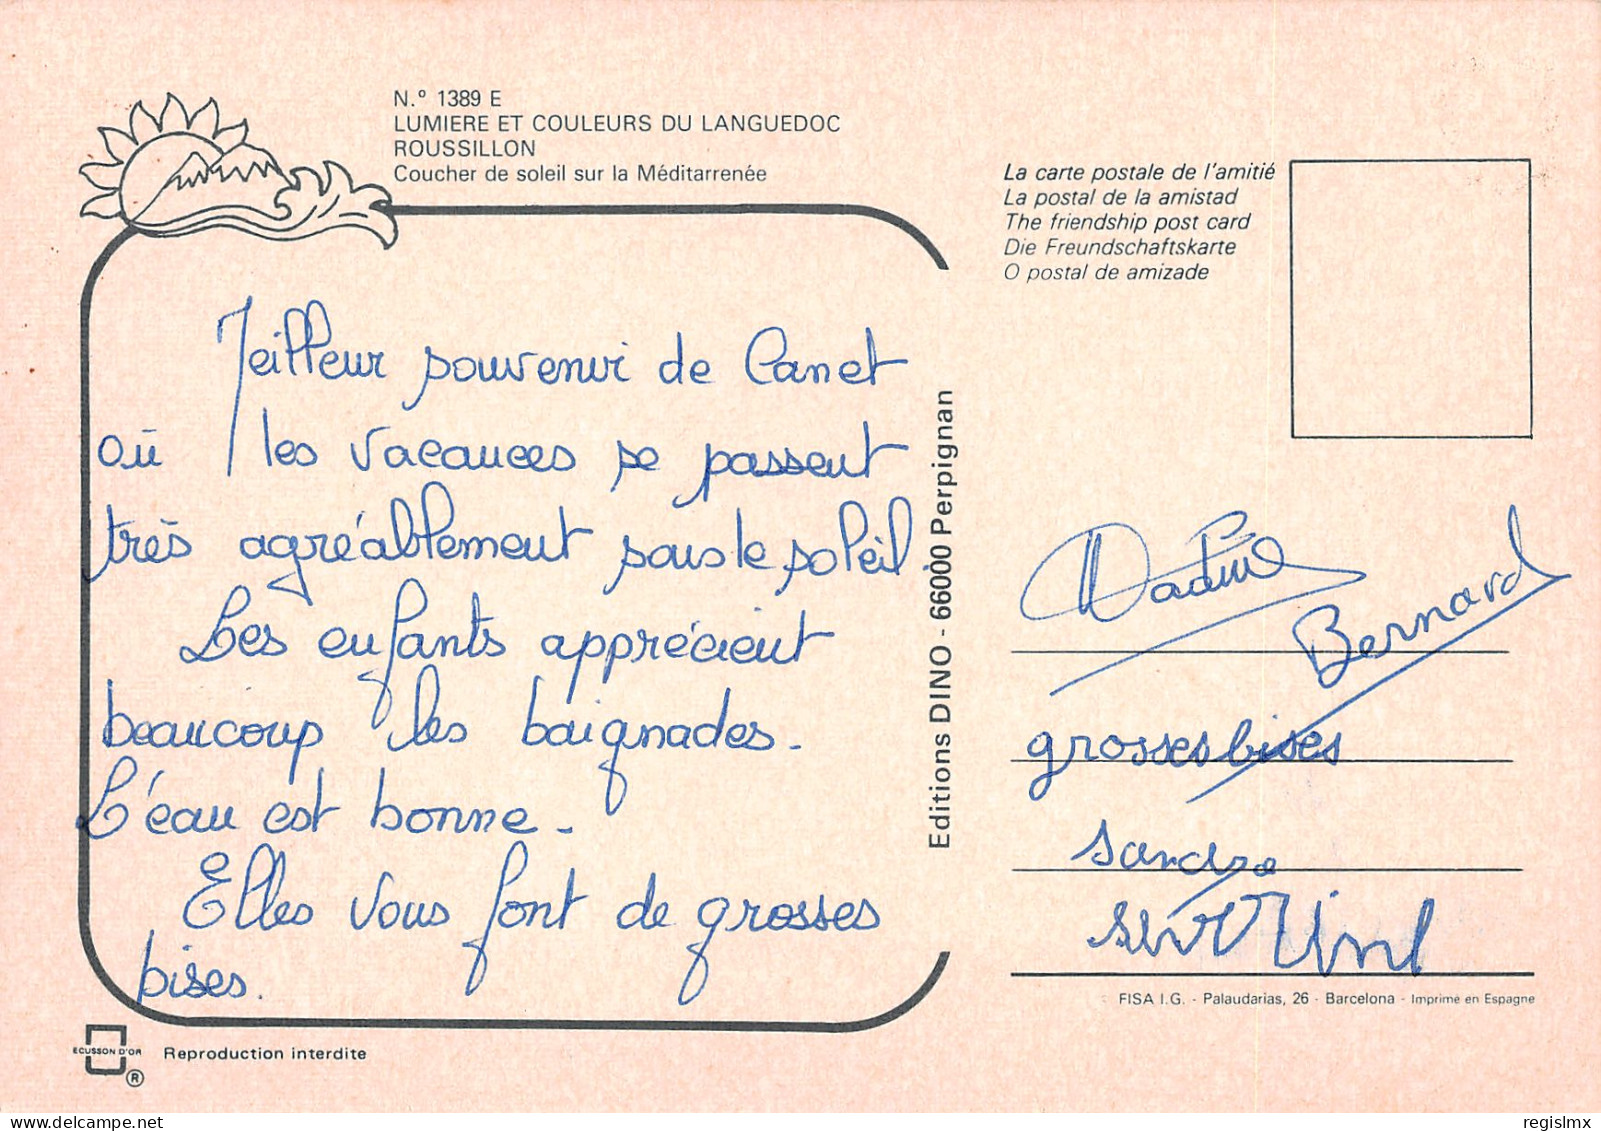 N.º 1389 E
LUMIERE ET COULEURS DU LANGUEDOC
ROUSSILLON
Coucher de soleil sur la Méditarrenée
La carte postale de l'amitié
La postal de la amistad
The friendship post card
Die Freundschaftskarte
O postal de amizade
Meilleur souvenir de Canet
où les vacances se passent
très agréablement sous le soleil.
Les enfants apprécient
beaucoup les baignades.
L'eau est bonne.
Elles vous font de grosses
bises.
Editions DINO - 66000 Perpignan
Bernard
grosses bises
Sandra
FISA I.G. - Palaudarias, 26 - Barcelona - Imprimé en Espagne
ECUSSON D'OR
®
Reproduction interdite
www.delcampe.net
regislmx